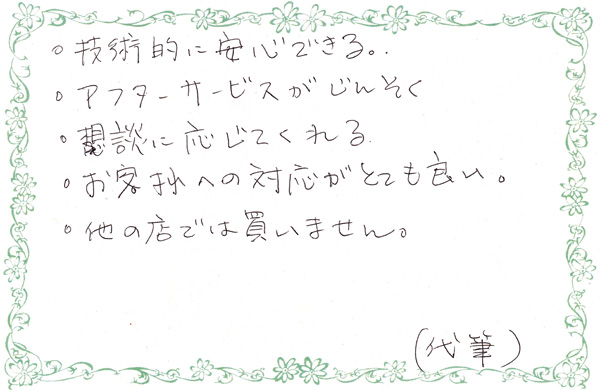 。技術的に安心できる。
。アフターサービスがじんそく
。想談に応じてくれる
。お客様への対応がとても良い。
。他の店では買いません。
(代筆)